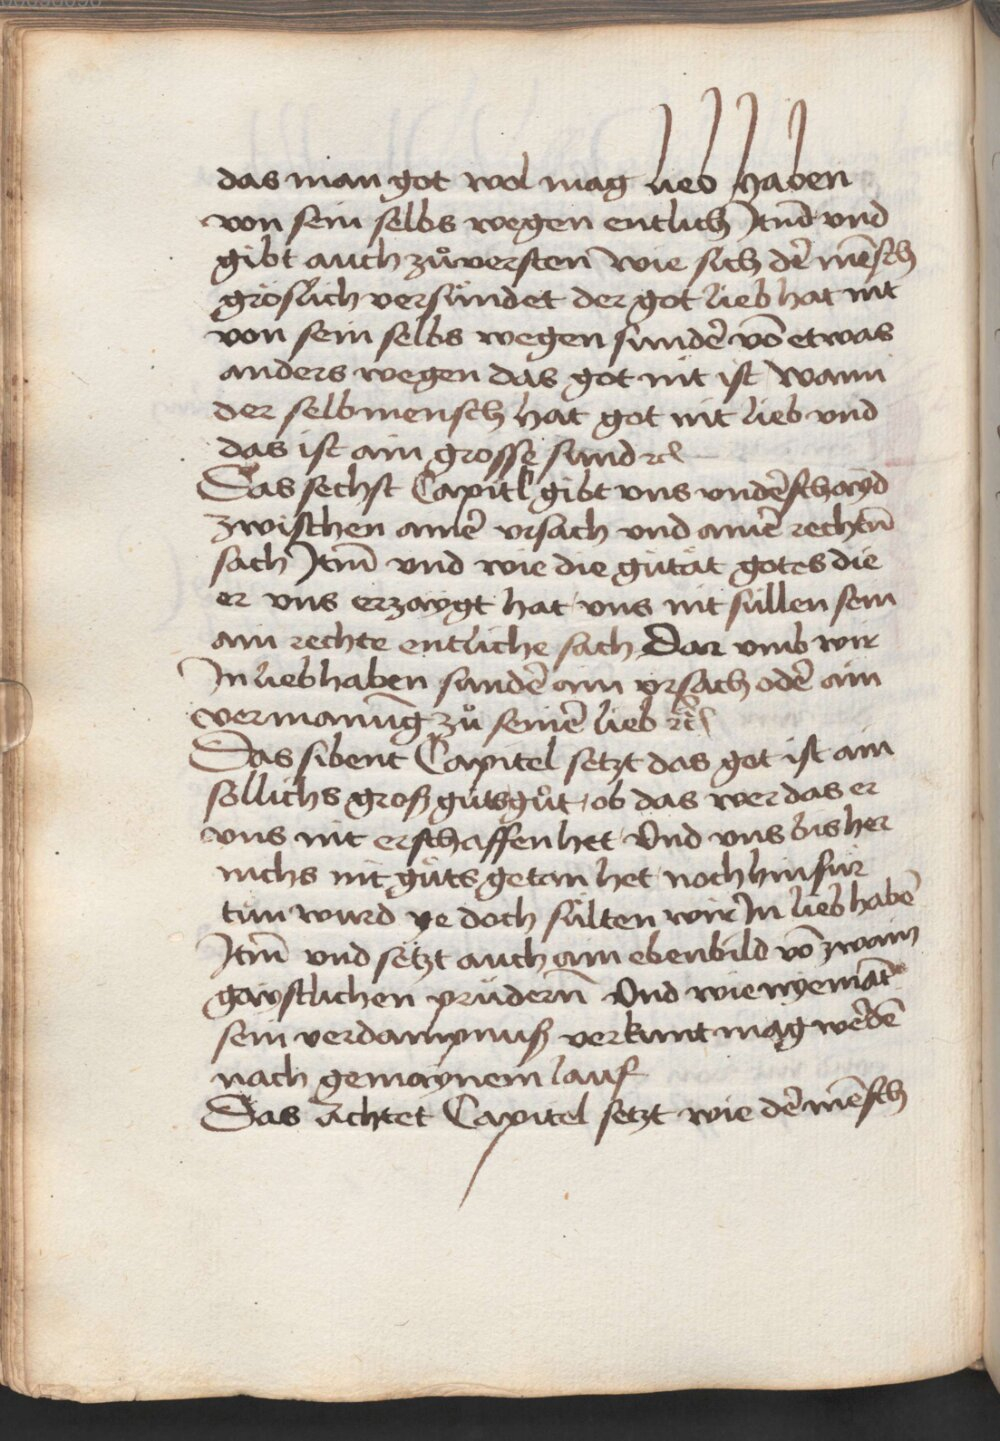 das man got wol mag lieb haben
von sein selbs wegen entlich Jtm̄ vnd
gibt auch zůuersten̄ wie sich der̄ mēsch
gröslich versündet der got lieb hat nit
von sein selbs wegen sunder̄ vō etwas
anders wegen das got nit ist wann
der selb mensch hat got nit lieb vnd
das ist ain grosse sund rc
Das sechst Capitl gibt vns vnder̄schayd
zwischen ainer̄ vrsach vnd ainer̄ rechten̄
sach Jtm̄ vnd wie die gütät gotes die
er vns erzaygt hat vns nit süllen sein
ain rechte entliche sach Dar vmb wir
Jn lieb haben sunder̄ ain vrsach oder̄ ain
vermanūg zů seiner̄ lieb rc
Das sibent Capitel setzt das got ist ain
söllichs groß gůts gůt ob das wer das er
vns nit erschaffen het Vnd vns bis her
nichs nit gůts getan het noch hinfür
tůn wurd ye doch sülten wir Jn lieb habē
Jtm̄ vnd setzt auch ain ebenbild vō zwain
gaystlichen prüdern̄ Vnd wie nyemāt
sein verdampnuß verkunt mag werdē
nach gemaynem lauf
Das achtet Capitel setzt wie der̄ mēsch